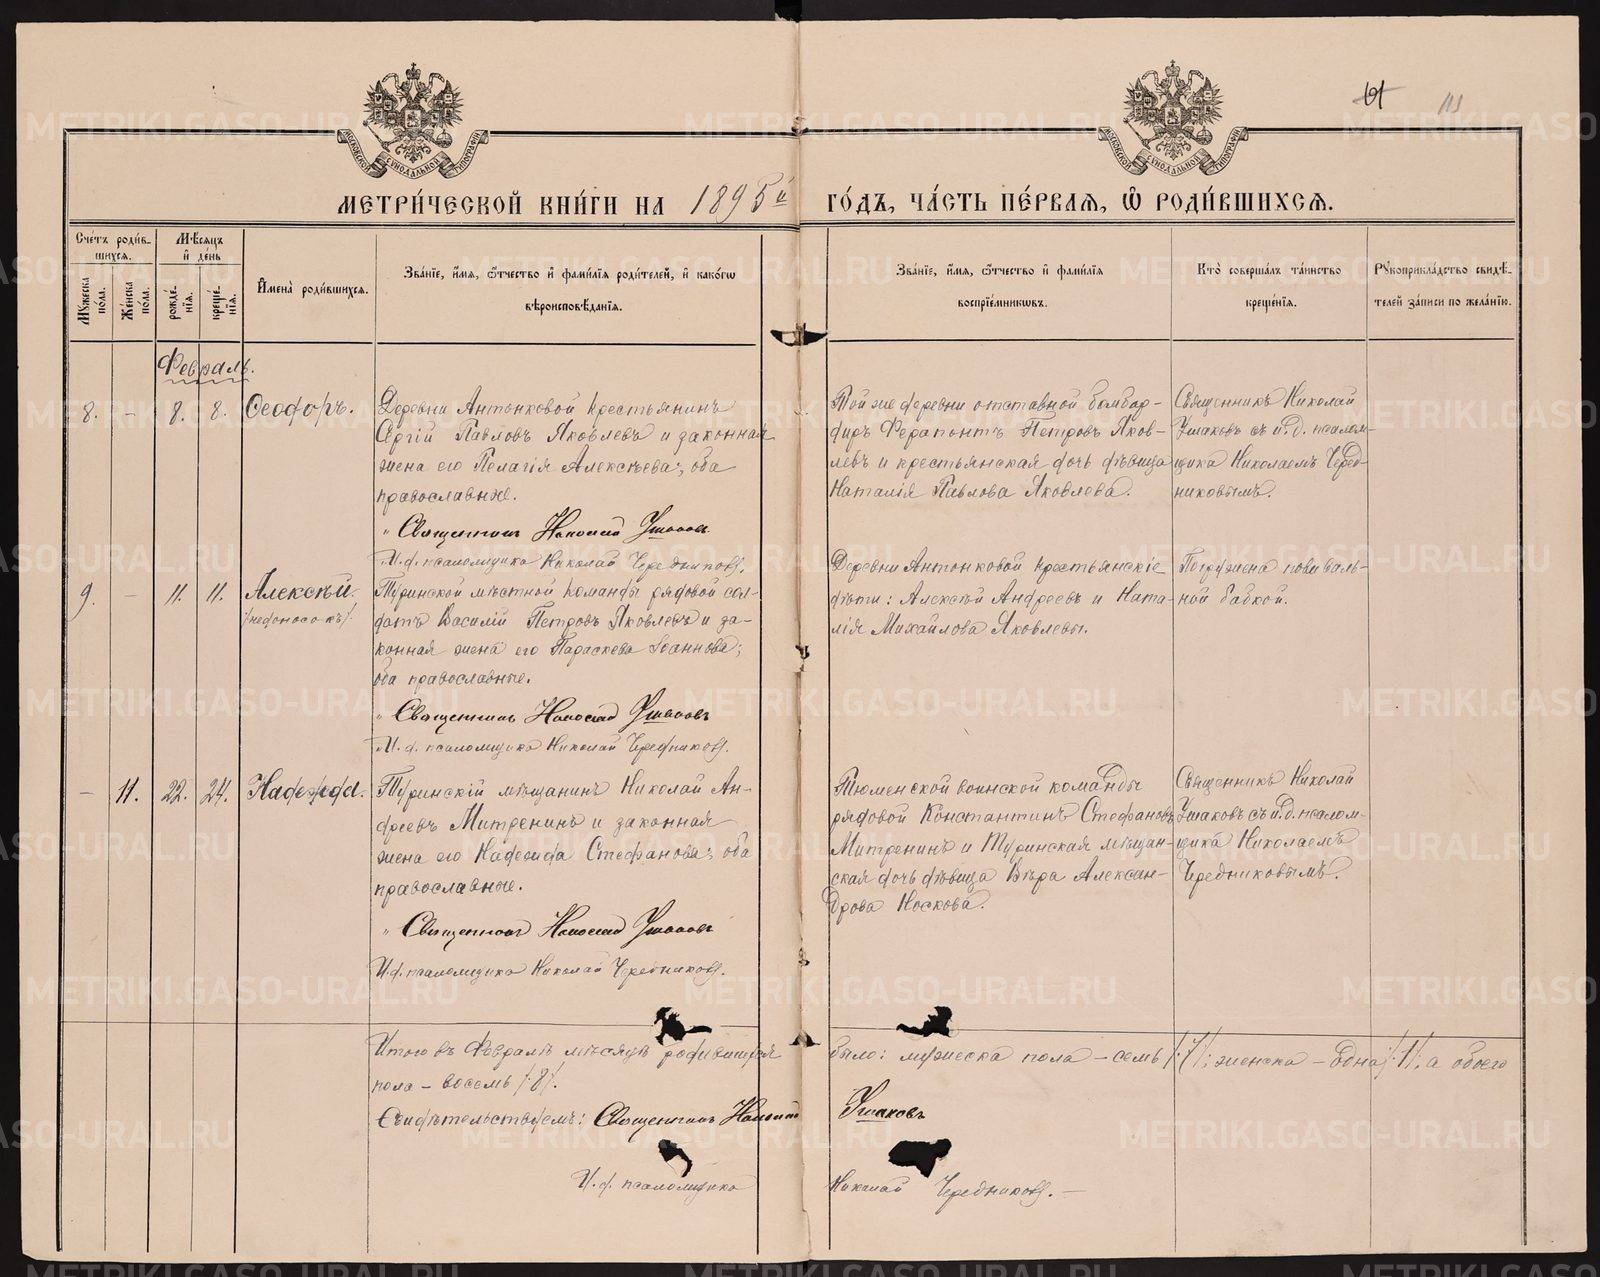 61
113
МОСКОВСКОЙ СѴНОДАЛЬНОЙ ТИПОГРАФІИ
МОСКОВСКОЙ СѴНОДАЛЬНОЙ ТИПОГРАФІИ
МЕТРИ́ЧЕСКОЙ КНИ́ГИ НА 1895й ГО́ДЪ, ЧА́СТЬ ПЕ́РВАЯ, Ѽ РОДИ́ВШИХСЯ.
Сче́тъ роди́в-
шихся.
Мꙋжеска по́ла.
Же́нска по́ла.
Мѣ́сяцъ
и҆ де́нь
рожде́-
нїя.
креще́-
нїя.
И҆мена̀ роди́вшихся.
Зва́нїе, и҆́мя, ѻ҆́тчество и҆ фами́лїя роди́телей, и҆ како́гѡ
вѣроисповѣ́данїя.
Зва́нїе, и҆́мя, ѻ҆́тчество и҆ фами́лїя
воспрїе́мникѡвъ.
Кто̀ соверша́лъ та́инство
креще́нїя.
Рꙋкоприкла́дство свидѣ́-
телей за́писи по жела́нїю.
Февраль.
8. - 8. 8. Ѳеодоръ.
Деревни Антонковой крестьянинъ
Сергій Павловъ Яковлевъ и законная
жена его Пелагія Алексѣева; оба
православные.
Священникъ Николай Ушаковъ
И.д. псаломщика Николай Чередниковъ.
Той же деревни отставной бомбар-
диръ Ферапонтъ Петровъ Яков-
левъ и крестьянская дочь дѣвица
Наталія Павлова Яковлева.
Священникъ Николай
Ушаковъ съ и.д. псалом-
щика Николаемъ Черед-
никовымъ.
9. - 11. 11. Алексѣй.
/недоносокъ/.
Туринской мѣстной команды рядовой сол-
датъ Василій Петровъ Яковлевъ и за-
конная жена его Параскева Іоаннова;
оба православные.
Священникъ Николай Ушаковъ
И.д. псаломщика Николай Чередниковъ.
Деревни Антонковой крестьянскіе
дѣти: Алексѣй Андреевъ и Ната-
лія Михайлова Яковлевы.
Погружена повиваль-
ной бабкой.
- 11. 22. 24. Надежда.
Туринскій мѣщанинъ Николай Ан-
дреевъ Митренинъ и законная
жена его Надежда Стефанова; оба
православные.
Священникъ Николай Ушаковъ
И.д. псаломщика Николай Чередниковъ.
Тюменской воинской команды
рядовой Константинъ Стефановъ
Митренинъ и Туринская мѣщан-
ская дочь дѣвица Вѣра Алексан-
дрова Носкова.
Священникъ Николай
Ушаковъ съ и.д. псалом-
щика Николаемъ
Чередниковымъ.
Итого въ Февралѣ мѣсяцѣ родившихся было: мужеска пола - семь /:7/: женска - одна /:1/: а обоего
пола - восемь /:8/.
Свидѣтельствуемъ: Священникъ Николай Ушаковъ
И.д. псаломщика Николай Чередниковъ. -
METRIKI.GASO-URAL.RU